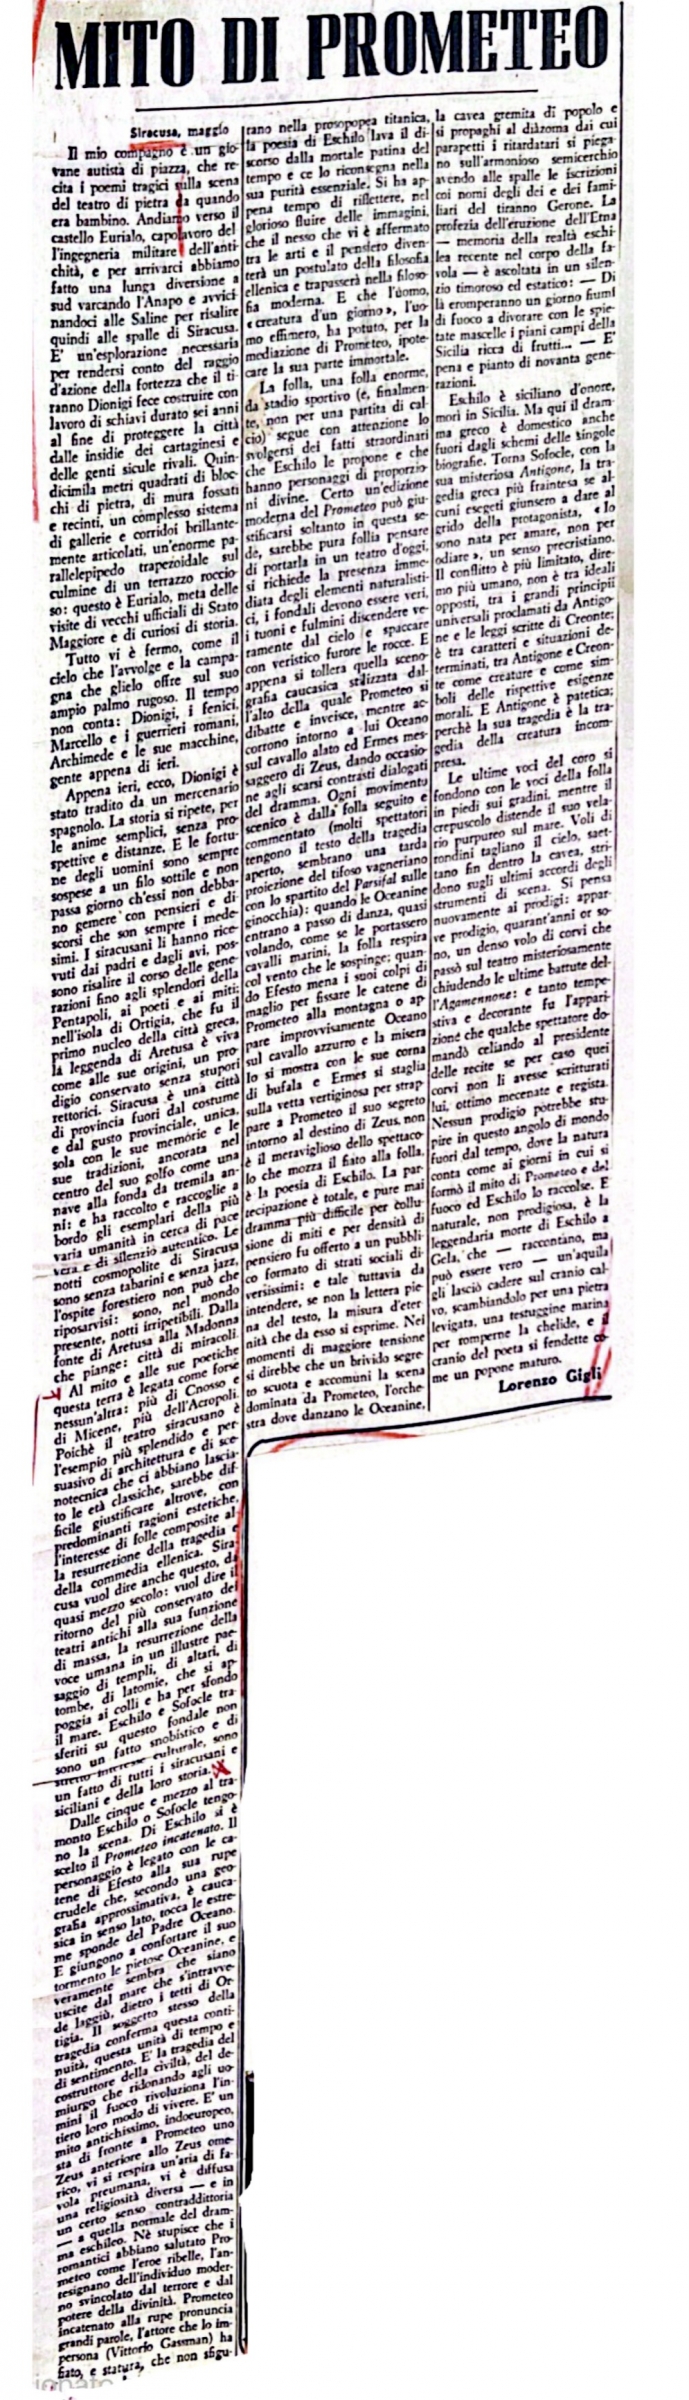 MITO DI PROMETEO
Siracusa, maggio
Il mio compagno è un gio-
vane autista di piazza, che re-
cita i poemi tragici sulla scena
del teatro di pietra da quando
era bambino. Andiamo verso il
castello Eurialo, capolavoro del-
l'ingegneria militare dell'anti-
chità, e per arrivarci abbiamo
fatto una lunga diversione a
sud varcando l'Anapo e avvici-
nandoci alle Saline per risalire
quindi alle spalle di Siracusa.
E' un'esplorazione necessaria
per rendersi conto del raggio
d'azione della fortezza che il ti-
ranno Dionigi fece costruire con
lavoro di schiavi durato sei anni
al fine di proteggere la città
dalle insidie dei cartaginesi e
delle genti sicule rivali. Quin-
dicimila metri quadrati di bloc-
chi di pietra, di mura fossati
e recinti, un complesso sistema
di gallerie e corridoi brillante-
mente articolati, un'enorme pa-
rallelepipedo trapezoidale sul
culmine di un terrazzo roccio-
so: questo è Eurialo, meta delle
visite di vecchi ufficiali di Stato
Maggiore e di curiosi di storia.
Tutto vi è fermo, come il
cielo che l'avvolge e la campa-
gna che glielo offre sul suo
ampio palmo rugoso. Il tempo
non conta: Dionigi, i fenici,
Marcello e i guerrieri romani,
Archimede e le sue macchine,
gente appena di ieri.
Appena ieri, ecco, Dionigi è
stato tradito da un mercenario
spagnolo. La storia si ripete, per
le anime semplici, senza pro-
spettive e distanze. E le fortu-
ne degli uomini sono sempre
sospese a un filo sottile e non
passa giorno ch'essi non debba-
no gemere con pensieri e di-
scorsi che son sempre i mede-
simi. I siracusani li hanno rice-
vuti dai padri e dagli avi, pos-
sono risalire il corso delle gene-
razioni fino agli splendori della
Pentapoli, ai poeti e ai miti:
nell'isola di Ortigia, che fu il
primo nucleo della città greca,
la leggenda di Aretusa è viva
come alle sue origini, un pro-
digio conservato senza stupori
rettorici. Siracusa è una città
di provincia fuori dal costume
e dal gusto provinciale, unica,
sola con le sue memorie e le
sue tradizioni, ancorata nel
centro del suo golfo come una
nave alla fonda da tremila an-
ni: e ha raccolto e raccoglie a
bordo gli esemplari della più
varia umanità in cerca di pace
vera e di silenzio autentico. Le
notti cosmopolite di Siracusa
sono senza tabarini e senza jazz,
l'ospite forestiero non può che
riposarvisi: sono, nel mondo
presente, notti irripetibili. Dalla
fonte di Aretusa alla Madonna
che piange: città di miracoli.
Al mito e alle sue poetiche
questa terra è legata come forse
nessun'altra: più di Cnosso e
di Micene, più dell'Acropoli.
Poichè il teatro siracusano è
l'esempio più splendido e per-
suasivo di architettura e di sce-
notecnica che ci abbiano lascia-
to le età classiche, sarebbe dif-
ficile giustificare altrove, con
predominanti ragioni estetiche,
l'interesse di folle composite al-
la resurrezione della tragedia e
della commedia ellenica. Sira-
cusa vuol dire anche questo, da
quasi mezzo secolo: vuol dire il
ritorno del più conservato dei
teatri antichi alla sua funzione
di massa, la resurrezione della
voce umana in un illustre pae-
saggio di templi, di altari, di
tombe, di latomie, che si ap-
poggia ai colli e ha per sfondo
il mare. Eschilo e Sofocle tra-
sferiti su questo fondale non
sono un fatto snobistico e di
stretto interesse culturale, sono
un fatto di tutti i siracusani e
siciliani e della loro storia.
Dalle cinque e mezzo al tra-
monto Eschilo o Sofocle tengo-
no la scena. Di Eschilo si è
scelto il Prometeo incatenato. Il
personaggio è legato con le ca-
tene di Efesto alla sua rupe
crudele che, secondo una geo-
grafia approssimativa, è cauca-
sica in senso lato, tocca le estre-
me sponde del Padre Oceano.
E giungono a confortare il suo
tormento le pietose Oceanine, e
veramente sembra che siano
uscite dal mare che s'intravve-
de laggiù, dietro i tetti di Or-
tigia. Il soggetto stesso della
tragedia conferma questa conti-
nuità, questa unità di tempo e
di sentimento. E' la tragedia del
costruttore della civiltà, del de-
miurgo che ridonando agli uo-
mini il fuoco rivoluziona l'in-
tiero loro modo di vivere. E' un
mito antichissimo, indoeuropeo,
sta di fronte a Prometeo uno
Zeus anteriore allo Zeus ome-
rico, vi si respira un'aria di fa-
vola preumana, vi è diffusa
una religiosità diversa — e in
un certo senso contraddittoria
— a quella normale del dram-
ma eschileo. Nè stupisce che i
romantici abbiano salutato Pro-
meteo come l'eroe ribelle, l'an-
tesignano dell'individuo moder-
no svincolato dal terrore e dal
potere della divinità. Prometeo
incatenato alla rupe pronuncia
grandi parole, l'attore che lo im-
persona (Vittorio Gassman) ha
fiato, e statura, che non sfigu-
rano nella prosopopea titanica,
la poesia di Eschilo lava il di-
scorso dalla mortale patina del
tempo e ce lo riconsegna nella
sua purità essenziale. Si ha ap-
pena tempo di riflettere, nel
glorioso fluire delle immagini,
che il nesso che vi è affermato
tra le arti e il pensiero diven-
terà un postulato della filosofia
ellenica e trapasserà nella filoso-
fia moderna. E che l'uomo,
«creatura d'un giorno», l'uo-
mo effimero, ha potuto, per la
mediazione di Prometeo, ipote-
care la sua parte immortale.
La folla, una folla enorme,
da stadio sportivo (e, finalmen-
te, non per una partita di cal-
cio) segue con attenzione lo
svolgersi dei fatti straordinari
che Eschilo le propone e che
hanno personaggi di proporzio-
ni divine. Certo un'edizione
moderna del Prometeo può giu-
stificarsi soltanto in questa se-
de, sarebbe pura follia pensare
di portarla in un teatro d'oggi,
si richiede la presenza imme-
diata degli elementi naturalisti-
ci, i fondali devono essere veri,
i tuoni e fulmini discendere ve-
ramente dal cielo e spaccare
con veristico furore le rocce. E
appena si tollera quella sceno-
grafia caucasica stilizzata dal-
l'alto della quale Prometeo si
dibatte e inveisce, mentre ac-
corrono intorno a lui Oceano
sul cavallo alato ed Ermes mes-
saggero di Zeus, dando occasio-
ne agli scarsi contrasti dialogati
del dramma. Ogni movimento
scenico è dalla folla seguito e
commentato (molti spettatori
tengono il testo della tragedia
aperto, sembrano una tarda
proiezione del tifoso vagneriano
con lo spartito del Parsifal sulle
ginocchia): quando le Oceanine
entrano a passo di danza, quasi
volando, come se le portassero
cavalli marini, la folla respira
col vento che le sospinge; quan-
do Efesto mena i suoi colpi di
maglio per fissare le catene di
Prometeo alla montagna o ap-
pare improvvisamente Oceano
sul cavallo azzurro e la misera
Io si mostra con le sue corna
di bufala e Ermes si staglia
sulla vetta vertiginosa per strap-
pare a Prometeo il suo segreto
intorno al destino di Zeus, non
è il meraviglioso dello spettaco-
lo che mozza il fiato alla folla,
è la poesia di Eschilo. La par-
tecipazione è totale, e pure mai
dramma più difficile per collu-
sione di miti e per densità di
pensiero fu offerto a un pubbli-
co formato di strati sociali di-
versissimi: e tale tuttavia da
intendere, se non la lettera pie-
na del testo, la misura d'eter-
nità che da esso si esprime. Nei
momenti di maggiore tensione
si direbbe che un brivido segre-
to scuota e accomuni la scena
dominata da Prometeo, l'orche-
stra dove danzano le Oceanine,
la cavea gremita di popolo e
si propaghi al diàzoma dai cui
parapetti i ritardatari si piega-
no sull'armonioso semicerchio
avendo alle spalle le iscrizioni
coi nomi degli dei e dei fami-
liari del tiranno Gerone. La
profezia dell'eruzione dell'Etna
— memoria della realtà eschi-
lea recente nel corpo della fa-
vola — è ascoltata in un silen-
zio timoroso ed estatico: — Di
là eromperanno un giorno fiumi
di fuoco a divorare con le spie-
tate mascelle i piani campi della
Sicilia ricca di frutti... — E'
pena e pianto di novanta gene-
razioni.
Eschilo è siciliano d'onore,
morì in Sicilia. Ma qui il dram-
ma greco è domestico anche
fuori dagli schemi delle singole
biografie. Torna Sofocle, con la
sua misteriosa Antigone, la tra-
gedia greca più fraintesa se al-
cuni esegeti giunsero a dare al
grido della protagonista, «Io
sono nata per amare, non per
odiare», un senso precristiano.
Il conflitto è più limitato, dire-
mo più umano, non è tra ideali
opposti, tra i grandi principii
universali proclamati da Antigo-
ne e le leggi scritte di Creonte;
è tra caratteri e situazioni de-
terminati, tra Antigone e Creon-
te come creature e come sim-
boli delle rispettive esigenze
morali. E Antigone è patetica;
perchè la sua tragedia è la tra-
gedia della creatura incom-
presa.
Le ultime voci del coro si
fondono con le voci della folla
in piedi sui gradini, mentre il
crepuscolo distende il suo vela-
rio purpureo sul mare. Voli di
rondini tagliano il cielo, saet-
tano fin dentro la cavea, stri-
dono sugli ultimi accordi degli
strumenti di scena. Si pensa
nuovamente ai prodigi: appar-
ve prodigio, quarant'anni or so-
no, un denso volo di corvi che
passò sul teatro misteriosamente
chiudendo le ultime battute del-
l'Agamennone: e tanto tempe-
stiva e decorante fu l'appari-
zione che qualche spettatore do-
mandò celiando al presidente
delle recite se per caso quei
corvi non li avesse scritturati
lui, ottimo mecenate e regista.
Nessun prodigio potrebbe stu-
pire in questo angolo di mondo
fuori dal tempo, dove la natura
conta come ai giorni in cui si
formò il mito di Prometeo e del
fuoco ed Eschilo lo raccolse. E'
naturale, non prodigiosa, è la
leggendaria morte di Eschilo a
Gela, che — raccontano, ma
può essere vero — un'aquila
gli lasciò cadere sul cranio cal-
vo, scambiandolo per una pietra
levigata, una testuggine marina
per romperne la chelide, e il
cranio del poeta si fendette co-
me un popone maturo.
Lorenzo Gigli